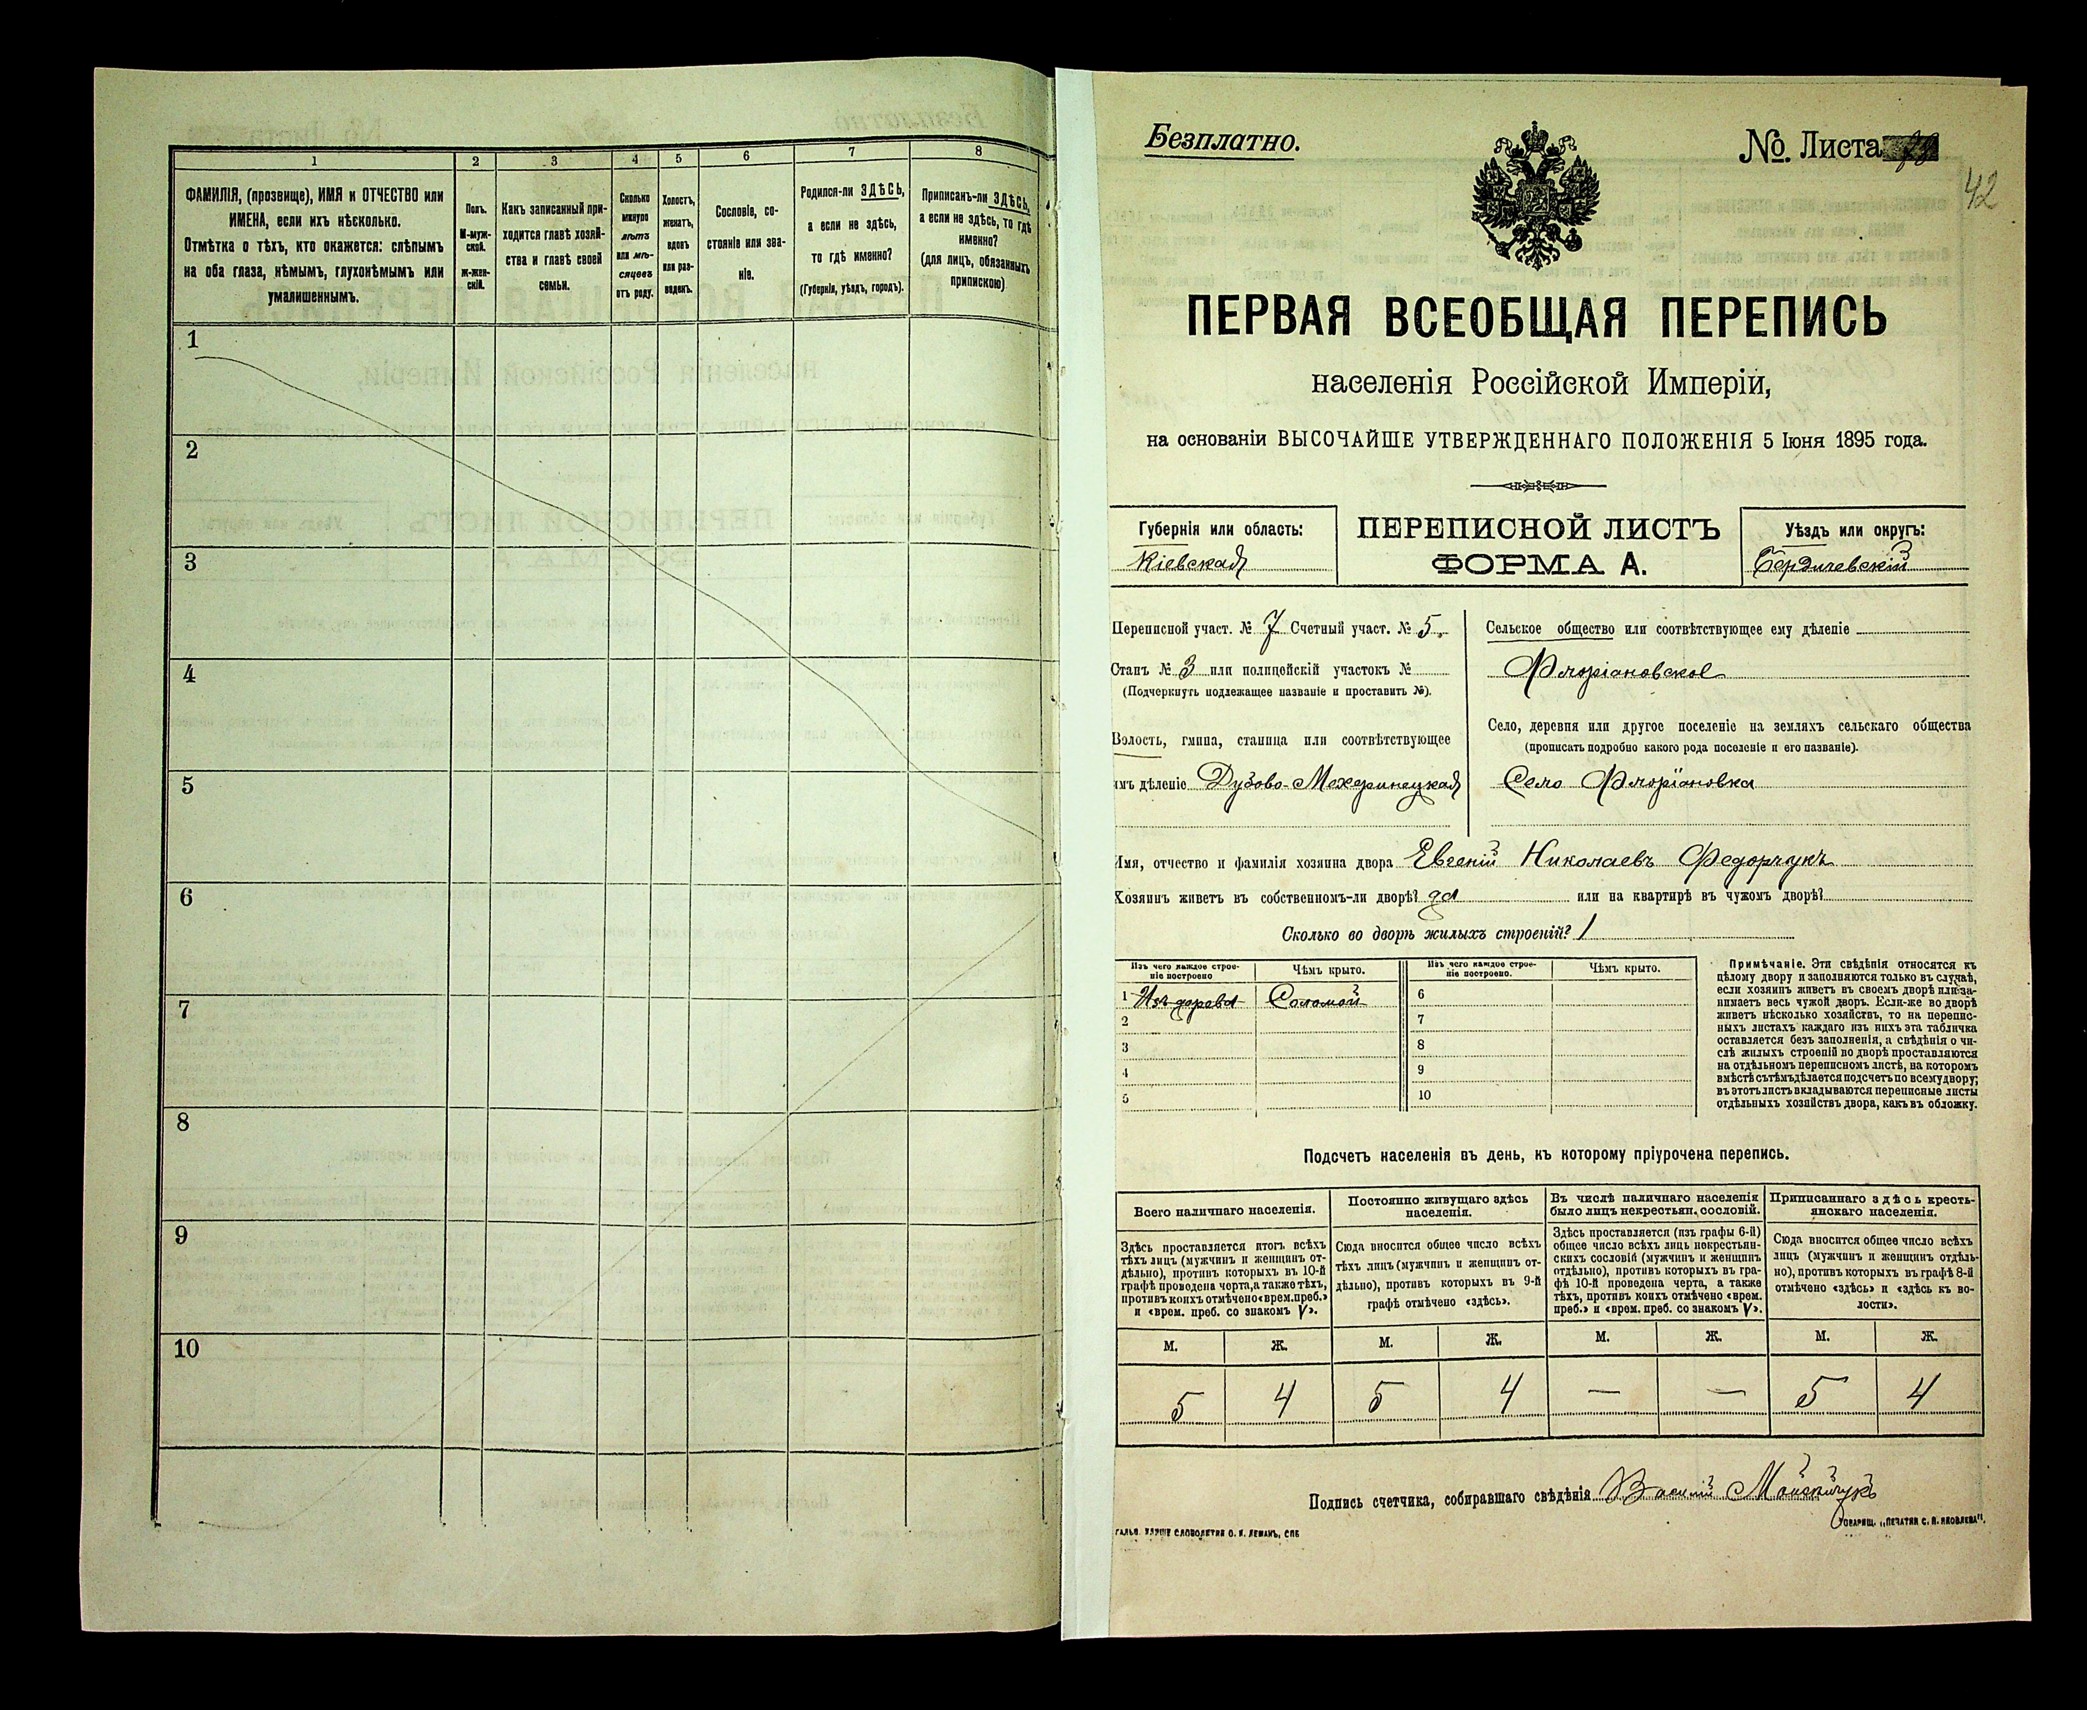 1
2
3
4
5
6
7
8
ФАМИЛІЯ, (прозвище), ИМЯ и ОТЧЕСТВО или
ИМЕНА, если ихъ нѣсколько.
Отмѣтка о тѣхъ, кто окажется: слѣпымъ
на оба глаза, нѣмымъ, глухонѣмымъ или
умалишеннымъ.
Полъ.
М-муж-
ской.
ж-жен-
скій.
Какъ записанный при-
ходится главѣ хозяй-
ства и главѣ своей
семьи.
Сколько
минуло
лѣтъ
или мѣ-
сяцевъ
отъ роду.
Холостъ,
женатъ,
вдовъ
или раз-
веденъ.
Сословіе, со-
стояніе или зва-
ніе.
Родился-ли ЗДѢСЬ,
а если не здѣсь,
то гдѣ именно?
(Губернія, уѣздъ, городъ).
Приписанъ-ли ЗДѢСЬ,
а если не здѣсь, то гдѣ
именно?
(для лицъ, обязанныхъ
припискою)
1
2
3
4
5
6
7
8
9
10
Безплатно.
№. Листа
42
ПЕРВАЯ ВСЕОБЩАЯ ПЕРЕПИСЬ
населенія Россійской Имперіи,
на основаніи ВЫСОЧАЙШЕ УТВЕРЖДЕННАГО ПОЛОЖЕНІЯ 5 Іюня 1895 года.
Губернія или область:
Кіевская
ПЕРЕПИСНОЙ ЛИСТЪ
ФОРМА А.
Уѣздъ или округъ:
Бердичевскій
Переписной участ. № 7 Счетный участ. № 5.
Станъ № 3 или полицейскій участокъ №
(Подчеркнуть подлежащее названіе и проставить №).
Волость, гмина, станица или соотвѣтствующее
имъ дѣленіе Дубово-Мехеринецкая
Сельское общество или соотвѣтствующее ему дѣленіе
Фморіановское
Село, деревня или другое поселеніе на земляхъ сельскаго общества
(прописать подробно какого рода поселеніе и его названіе).
Село Флоріановка
Имя, отчество и фамилія хозяина двора Евгеній Николаевъ Федорчукъ
Хозяинъ живетъ въ собственномъ-ли дворѣ? да или на квартирѣ въ чужомъ дворѣ?
Сколько во дворѣ жилыхъ строеній? 1
Изъ чего каждое строе-
ніе построено
Чѣмъ крыто.
Изъ чего каждое строе-
ніе построено.
Чѣмъ крыто.
1 Изъ дерева Соломой
2
3
4
5
6
7
8
9
10
Примѣчаніе. Эти свѣдѣнія относятся къ
цѣлому двору и заполняются только въ случаѣ,
если хозяинъ живетъ въ своемъ дворѣ или за-
нимаетъ весь чужой дворъ. Если-же во дворѣ
живетъ нѣсколько хозяйствъ, то на перепис-
ныхъ листахъ каждаго изъ нихъ эта табличка
оставляется безъ заполненія, а свѣдѣнія о чи-
слѣ жилыхъ строеній во дворѣ проставляются
на отдѣльномъ переписномъ листѣ, на которомъ
вмѣстѣ съ тѣмъ дѣлается подсчетъ по всему двору;
въ этотъ листъ вкладываются переписные листы
отдѣльныхъ хозяйствъ двора, какъ въ обложку.
Подсчетъ населенія въ день, къ которому пріурочена перепись.
Всего наличнаго населенія.
Постоянно живущаго здѣсь
населенія.
Въ числѣ наличнаго населенія
было лицъ некрестьян. сословій.
Приписаннаго здѣсь кресть-
янскаго населенія.
Здѣсь проставляется итогъ всѣхъ
тѣхъ лицъ (мужчинъ и женщинъ от-
дѣльно), противъ которыхъ въ 10-й
графѣ проведена черта, а также тѣхъ,
противъ коихъ отмѣчено «врем. преб.»
и «врем. преб. со знакомъ V».
Сюда вносится общее число всѣхъ
тѣхъ лицъ (мужчинъ и женщинъ от-
дѣльно), противъ которыхъ въ 9-й
графѣ отмѣчено «здѣсь».
Здѣсь проставляется (изъ графы 6-й)
общее число всѣхъ лицъ некрестьян-
скихъ сословій (мужчинъ и женщинъ
отдѣльно), противъ которыхъ въ гра-
фѣ 10-й проведена черта, а также
тѣхъ, противъ коихъ отмѣчено «врем.
преб.» и «врем. преб. со знакомъ V».
Сюда вносится общее число всѣхъ
лицъ (мужчинъ и женщинъ отдѣль-
но), противъ которыхъ въ графѣ 8-й
отмѣчено «здѣсь» и «здѣсь къ во-
лости».
М. Ж. М. Ж. М. Ж. М. Ж.
5 4 5 4 — — 5 4
Подпись счетчика, собиравшаго свѣдѣнія Василій
СЛОВОЛИТНЯ О. И. ЛЕМАНЪ, СПБ
ТОВАРИЩ. „ПЕЧАТНЯ С. П. ЯКОВЛЕВА".